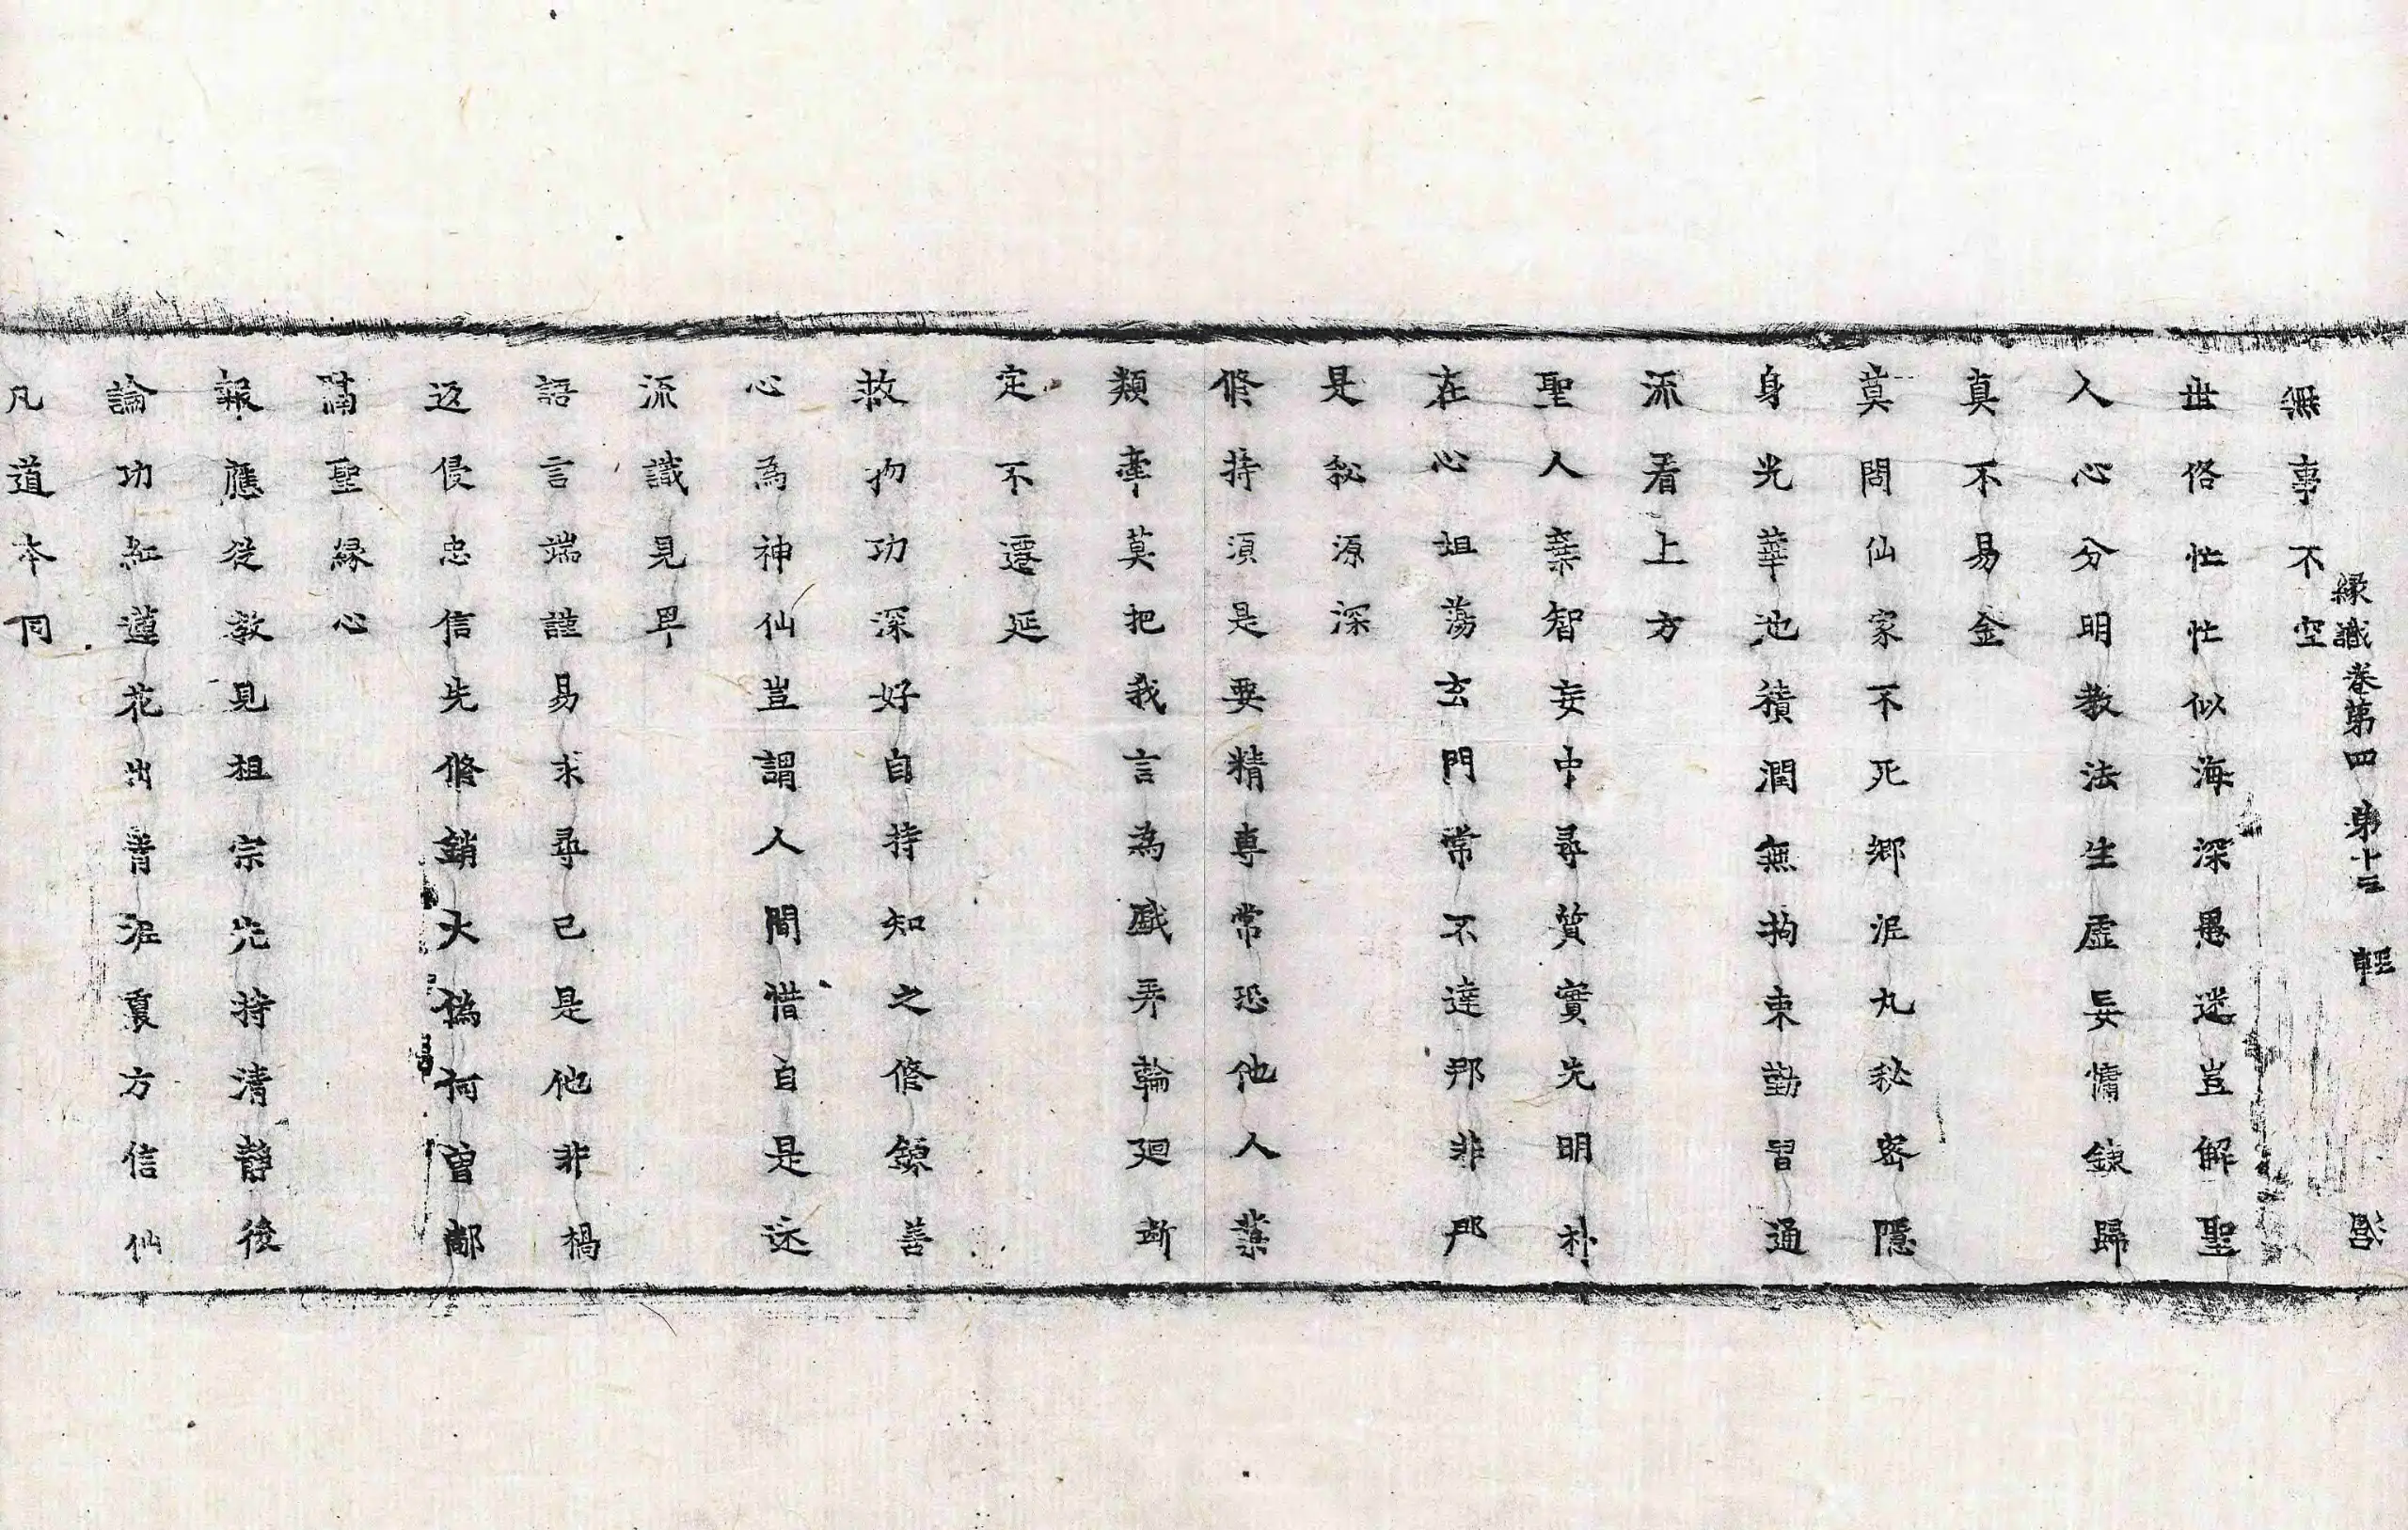 緣識卷第四 第十三 輕
無事不空
世俗忙忙似海深愚迷豈解聖
人心分明教法生虛妄慵鍊歸
真不易金
莫問仙家不死鄉泥丸秘密隱
身光華池積潤無拘束勤習通
流看上方
聖人棄智妄中尋質實先明朴
在心坦蕩玄門常不達邪非
是秘源深
修持須是要精專常恐他人業
類牽莫把我言為戲弄輪迴斷
定不遷延
救物功深好自持知之修鍊善
心為神仙豈謂人間惜自是迷
流識見卑
語言端謹易求尋己是他非禍
返侵忠信先修銷大偽何曾鄙
聖緣心
報應從教見祖宗先持清靜後
論功紅蓮花出青泥裏方信仙
凡道本同